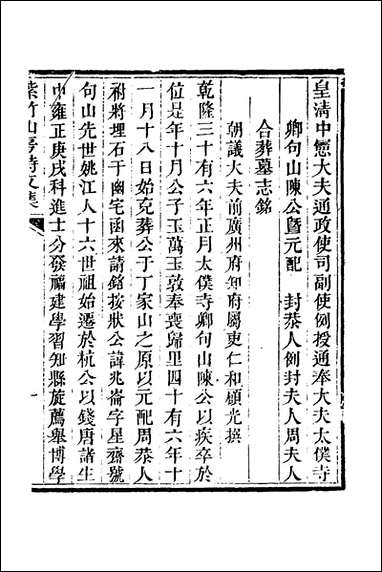 皇清中憲大夫通政使司副使例授通奉大夫太僕寺
卿句山陳公暨元配　封恭人例封夫人周夫人
合葬墓志銘
朝議大夫前廣州府知府屬東仁和顧光撰
乾隆三十有六年正月太僕寺卿句山陳公以疾卒於
位是年十月公子玉萬玉敦奉喪歸里四十有六年十
一月十八日始克葬公于丁家山之原以元配周恭人
祔將埋石于幽宅函來請銘按狀公諱兆崙字星齋號
句山先世姚江人十六世祖始遷於杭公以錢唐諸生
中雍正庚戌科進士分發福建學習知縣旋薦舉博學
紫竹山房詩文集